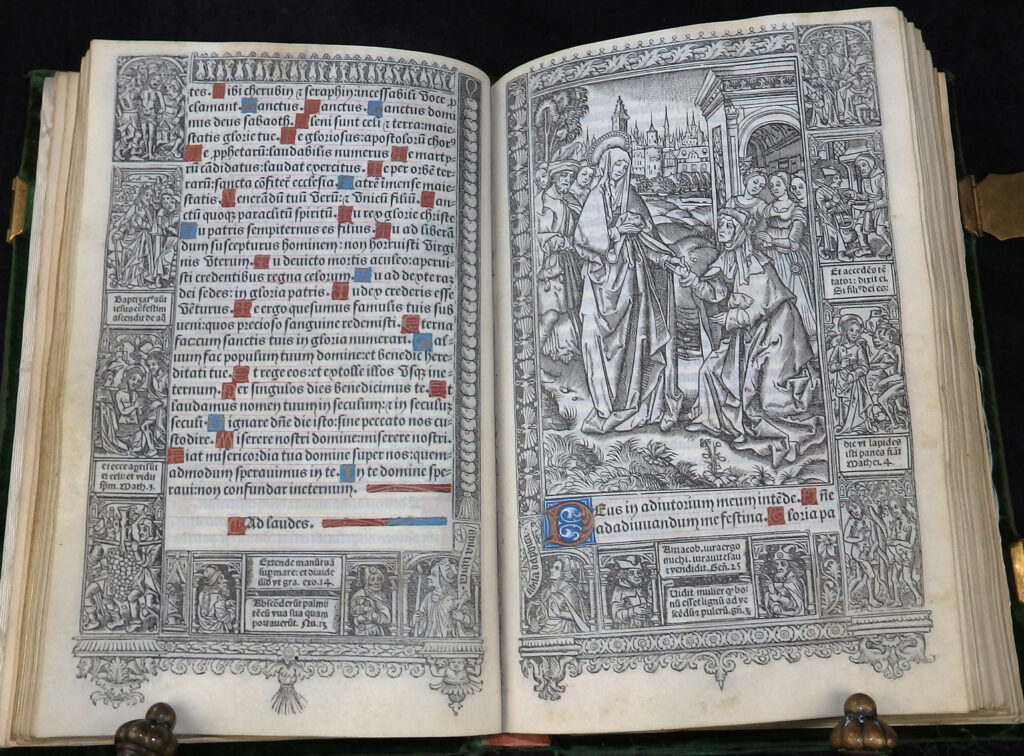 tes. Tibi cherubin ⁊ seraphin: incessabili voce p
clamant. Sanctus. Sanctus. Sanctus domi
nus deus sabaoth. Pleni sunt celi ⁊ terra: maie
statis glorie tue. Te gloriosus: apostolorū chorꝰ
Te ꝓphetarū: laudabilis numerus Te marty
rū cādidatus: laudat exercitus. Te per orbē ter
rarū: sancta cōfitet̄ ecclesia. Patrē imense maie
statis. Venerādū tuū verū: ⁊ vnicū filiū. Sanc
tū quoqꝫ paraclitū spiritū. Tu rex glorie christe
Tu patris sempiternus es filius. Tu ad liberā
dum suscepturus hominem: non horruisti virgi
nis vterum. Tu deuicto mortis aculeo: aperui
sti credentibus regna celorum. Tu ad dexterā
dei sedes: in gloria patris. Iudex crederis esse
venturus. Te ergo quesumus famulis tuis sub
ueni: quos precioso sanguine redemisti. Eterna
fac cum sanctis tuis in gloria numerari. Sal-
uum fac populum tuum domine: et benedic here
ditati tue. Et rege eos: et extolle illos vsqꝫ ine-
ternum. Per singulos dies benedicimus te. Et
laudamus nomen tuum in seculum: ⁊ in seculū
seculi. Dignare dn̄e die isto: sine peccato nos cu
stodire. Miserere nostri domine: miserere nostri.
Fiat misericordia tua domine super nos: quem-
admodum sperauimus in te. In te domine spe-
raui: non confundar ineternum.
Ad laudes.
Baptizatꝰ aūt
iesus cōfestim
ascendit de aq̄
et ecce apti sūt
ei celi: et vidit
spm̄. Math. 3.
Extende manū tuā
sup mare: et diuide
illd vt gra. exo. 14.
Abscēderūt palmi
tē cū vua sua quam
portauerūt. Nu. 13
Deus in adiutorium meum intēde. Dn̄e
ad adiuuandum me festina. Gloria pa
Et accedēs tē
tator: dixit ei
Si filiꝰ dei es:
dic vt lapides
isti panes fiāt
Mathei. 4.
Ait iacob. iura ergo
michi. iurauit esau
⁊ vendidit. Gen̄. 25
Vidit mulier ꝙ bo
nū esset lignū ad ve
scēdū ⁊ pulcrū. gn̄. 3